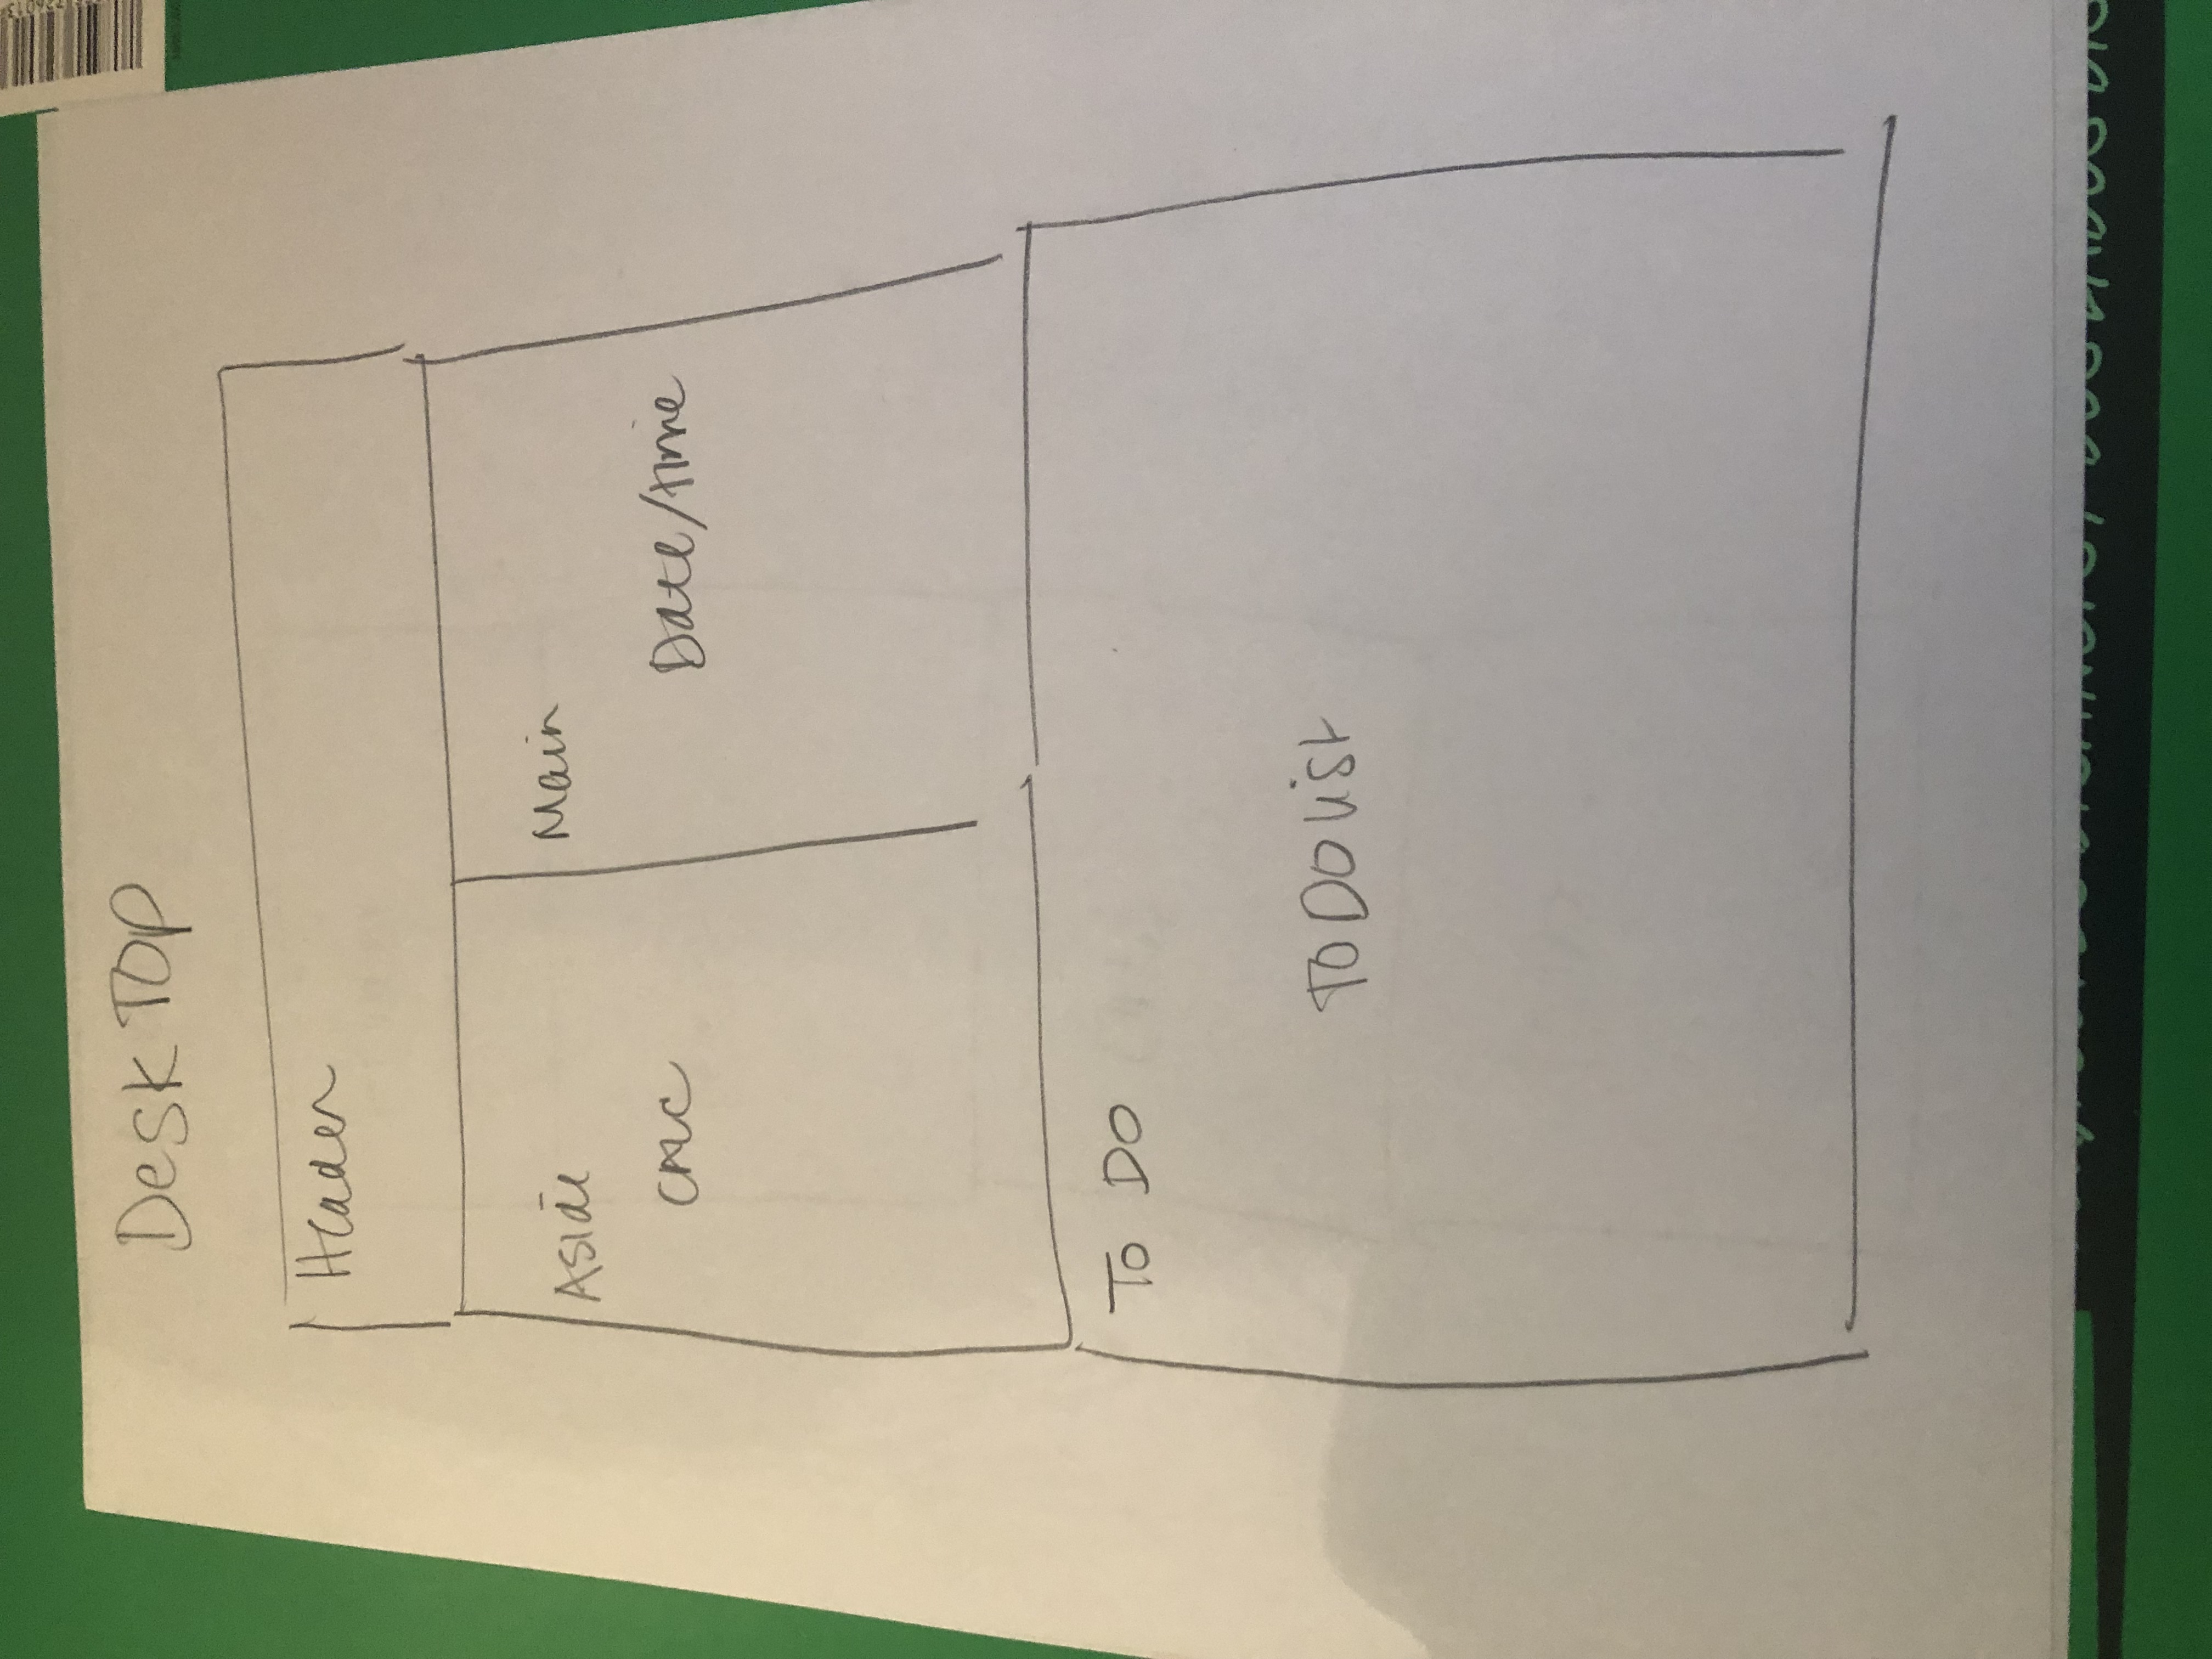 DeskTOP
Header
Aside
CALC
Main
Date/time
To DO
TO DO list